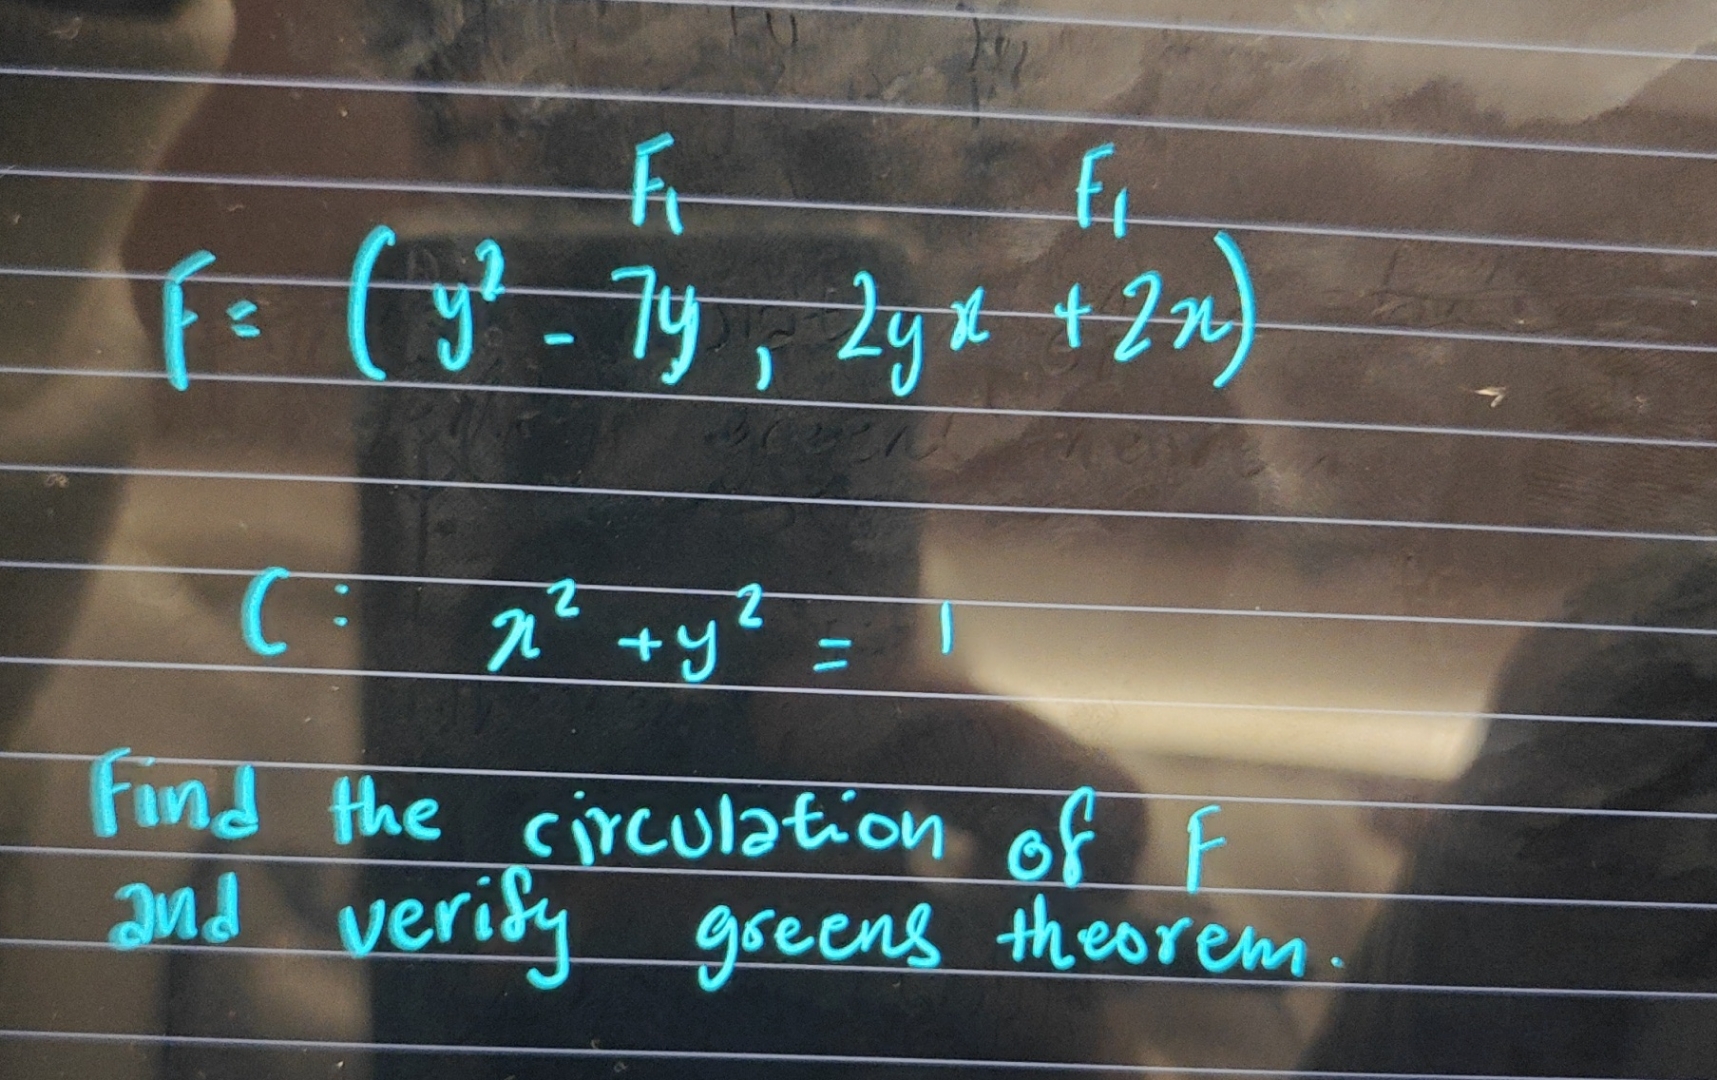 F₁ F₁
F = ( y² - 7y , 2yx + 2x)
C : x² + y² = 1
Find the circulation of F
and verify greens theorem.